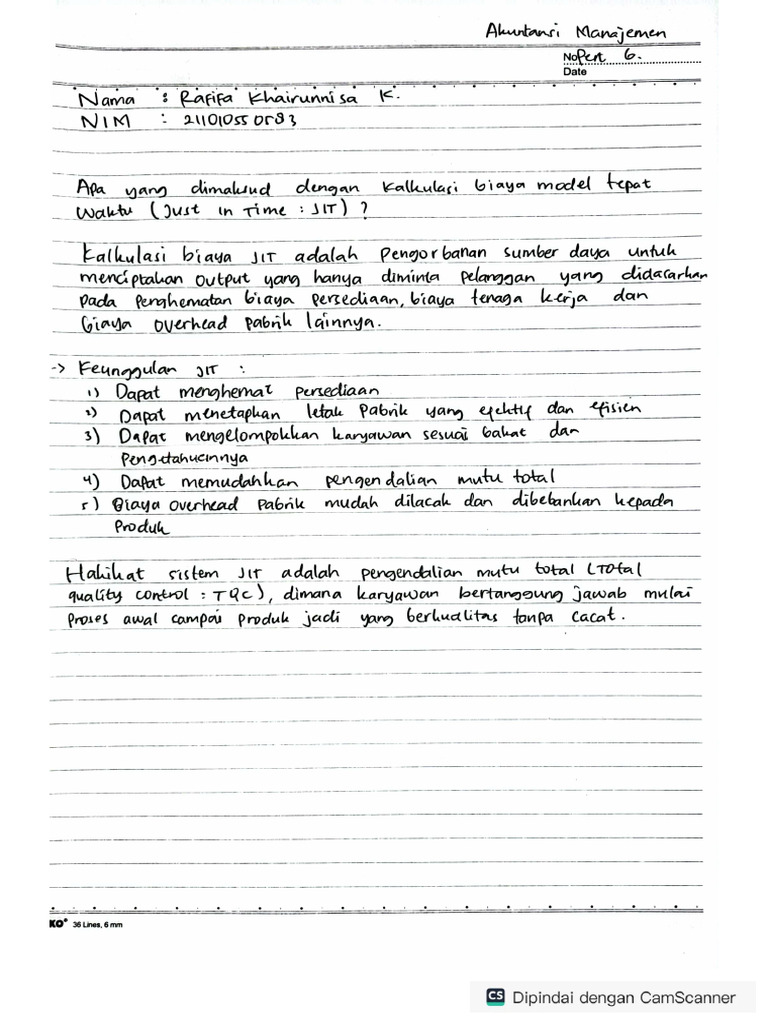 Akuntansi Manajemen
No Pert 6.
Date
Nama : Rafifa Khairunnisa K.
NIM : 21101055 0583
Apa yang dimaksud dengan kalkulasi biaya model tepat
waktu (Just in Time : JIT) ?
Kalkulasi biaya JIT adalah pengorbanan sumber daya untuk
menciptakan output yang hanya diminta pelanggan yang didasarkan
pada penghematan biaya persediaan, biaya tenaga kerja dan
biaya overhead pabrik lainnya.
-> Keunggulan JIT :
1) Dapat menghemat persediaan
2) Dapat menetapkan letak pabrik yang efektif dan efisien
3) Dapat mengelompokkan karyawan sesuai bakat dan
pengetahuannya
4) Dapat memudahkan pengendalian mutu total
5) Biaya overhead pabrik mudah dilacak dan dibebankan kepada
produk
Hakikat sistem JIT adalah pengendalian mutu total (Total
quality control : TQC), dimana karyawan bertanggung jawab mulai
proses awal sampai produk jadi yang berkualitas tanpa cacat.
KO 36 Lines, 6 mm
CS Dipindai dengan CamScanner